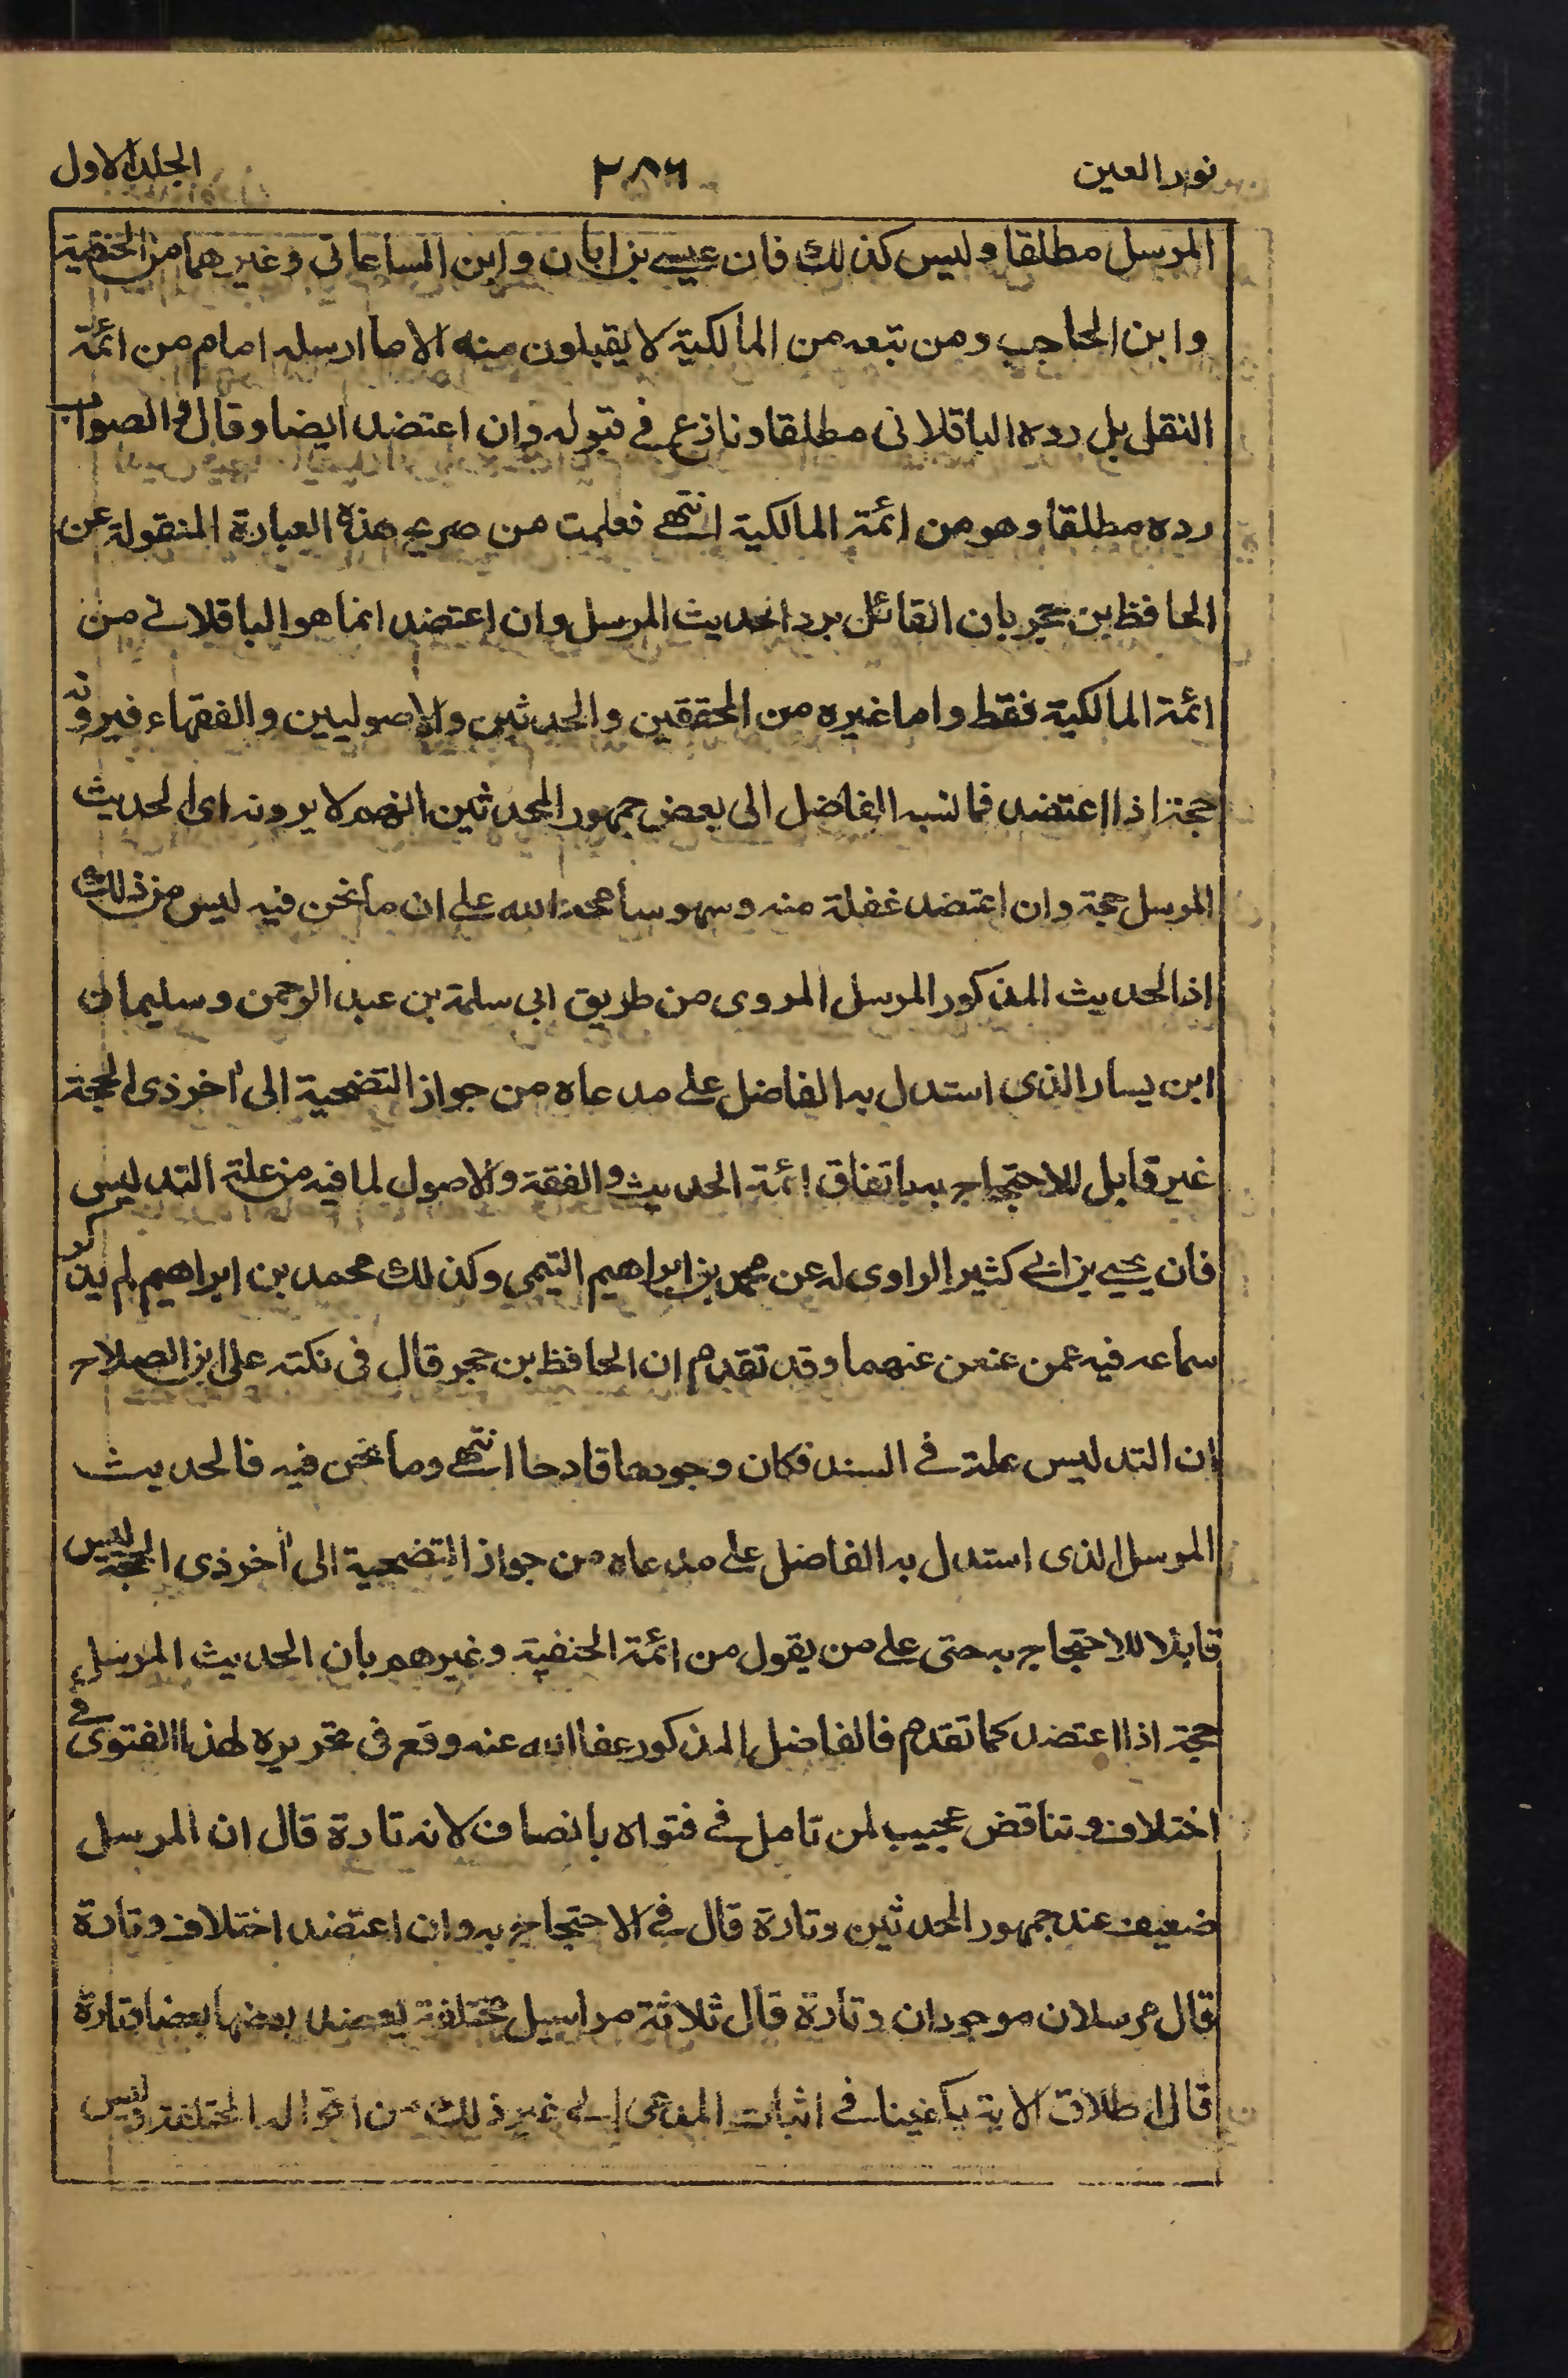 نور العين ٢٨٦ الجلد الاول
المرسل مطلقا وليس كذلك فان عيسى بن ابان وابن الساعاتي وغيرهما من الحنفية
وابن الحاجب ومن تبعه من المالكية لا يقبلون منه الا ما ارسله امام من ائمة
النقل بل رده الباقلانى مطلقا ونازع في قبوله وان اعتضد ايضا وقال والصواب
رده مطلقا وهو من ائمة المالكية انتهى فعلمت من صريح هذه العبارة المنقولة عن
الحافظ بن حجر بان القائل برد الحديث المرسل وان اعتضد انما هو الباقلاني من
ائمة المالكية فقط واما غيره من المحققين والمحدثين والاصوليين والفقهاء فيرونه
حجة اذا اعتضد فما نسبه الفاضل الى بعض جمهور المحدثين انهم لا يرونه اى الحديث
المرسل حجة وان اعتضد غفلة منه وسهو سامحه الله على ان ما نحن فيه ليس من ذلك
اذ الحديث المذكور المرسل المروى من طريق ابى سلمة بن عبد الرحمن وسليمان
ابن يسار الذى استدل به الفاضل على مدعاه من جواز التضحية الى اٰخر ذى الحجة
غير قابل للاحتجاج به باتفاق ائمة الحديث والفقة والاصول لما فيه من علة التدليس
فان يحيى بن ابي كثير الراوى له عن محمد بن ابراهيم التيمي وكذلك محمد بن ابراهيم لم يذكر
سماعه فيه عمن عنعن عنهما وقد تقدم ان الحافظ بن حجر قال فى نكته على ابن الصلاح
ان التدليس علة في السند فكان وجودها قادحا انتهى وما نحن فيه فالحديث
المرسل الذى استدل به الفاضل على مدعاه من جواز التضحية الى اٰخر ذى الحجة ليس
قابلا للاحتجاج به حتى على من يقول من ائمة الحنفية وغيرهم بان الحديث المرسل
حجة اذا اعتضد كما تقدم فالفاضل المذكور عفا الله عنه وقع فى تحريره لهذا الفتوى في
اختلاف وتناقض عجيب لمن تامل في فتواه بانصاف لانه تارة قال ان المرسل
ضعيف عند جمهور المحدثين وتارة قال في الاحتجاج به وان اعتضد اختلاف وتارة
قال مرسلان موجودان وتارة قال ثلاثة مراسيل مختلفة يعضد بعضها بعضا وتارة
قال اطلاق الاية يكفينا في اثبات المدعى الى غير ذلك من اقواله المختلفة وليس